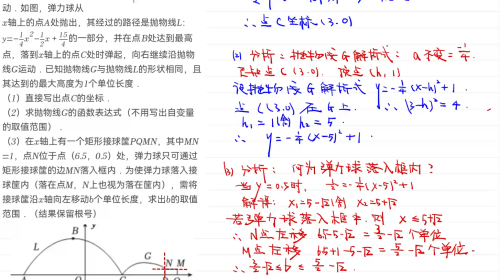 动. 如图, 弹力球从
x轴上的点A处抛出, 其经过的路径是抛物线L:
y=-1/4x²-1/2x+15/4的一部分, 并在点B处达到最高
点, 落到x轴上的点C处时弹起, 向右继续沿抛物
线G运动. 已知抛物线G与抛物线L的形状相同, 且
其达到的最大高度为1个单位长度.
(1) 直接写出点C的坐标.
(2) 求抛物线G的函数表达式 (不用写出自变量
的取值范围).
(3) 在x轴上有一个矩形接球筐PQMN, 其中MN
=1, 点N位于点 (6.5, 0.5) 处, 弹力球只可通过
矩形接球筐的边MN落入框内. 为使弹力球落入接
球筐内 (落在点M, N上也视为落在筐内), 需将
接球筐沿x轴向左移动b个单位长度, 求出b的取值
范围. (结果保留根号)
y
B
L
G
N M
A
O
∴点C坐标(3.0)
(2) 分析: 抛物线G解析式: a不变=-1/4.
已知点C(3.0). 顶点(h,1)
设抛物线G解析式 y=-1/4(x-h)²+1
点C(3.0)在G上. ∴(3-h)²=4.
h₁=1(舍) h₂=5.
∴ y=-1/4(x-5)²+1.
(3) 分析: 何为弹力球落入框内?
当y=0.5时, 1/2=-1/4(x-5)²+1
解得: x₁=5-√2(舍) x₂=5+√2
若弹力球落入框中. 则 x≤5+√2
∴ N点左移 6.5-5-√2=3/2-√2个单位
M点左移 6.5+1-5-√2=5/2-√2个单位.
∴3/2-√2≤b≤5/2-√2.